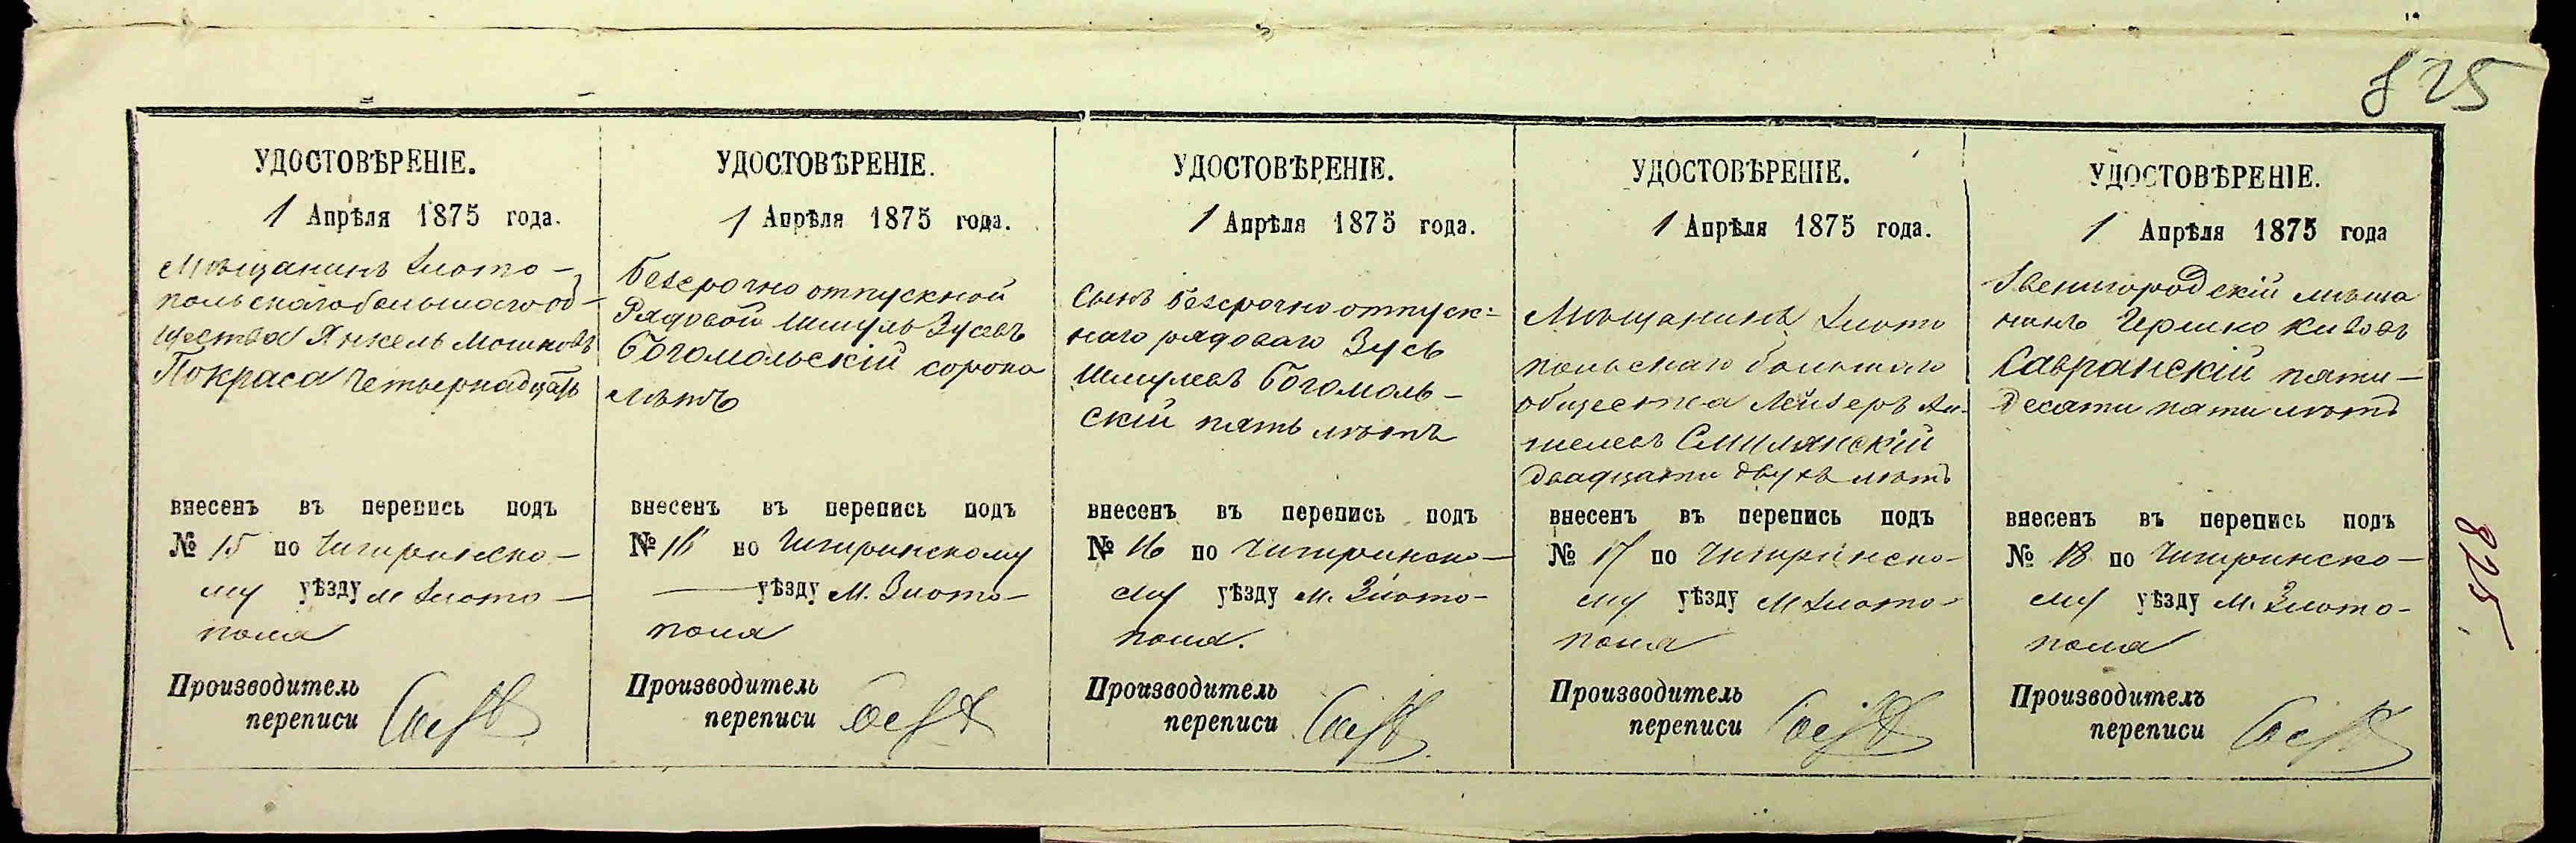 825
УДОСТОВѢРЕНІЕ.
1 Апрѣля 1875 года.
Мѣщанинъ Злото-
польскаго большаго об-
щества Янкель Мошковъ
Покраса четырнадцать
внесенъ въ перепись подъ
№ 15 по Чигиринско-
му уѣзду м Злото-
поля
Производитель
переписи
УДОСТОВѢРЕНІЕ.
1 Апрѣля 1875 года.
Безсрочно отпускной
Рядовой Шмуль Зусевъ
Богомольскій сорока
лѣтъ
внесенъ въ перепись подъ
№ 16 по Чигиринскому
уѣзду М. Злото-
поля
Производитель
переписи
УДОСТОВѢРЕНІЕ.
1 Апрѣля 1875 года.
Сынъ безсрочно отпуск-
наго рядоваго Зусь
Шмулевъ Богомоль-
скій пять лѣтъ
внесенъ въ перепись подъ
№ 16 по Чигиринско-
му уѣзду м. Злото-
поля.
Производитель
переписи
УДОСТОВѢРЕНІЕ.
1 Апрѣля 1875 года.
Мѣщанинъ Злото
польскаго большаго
общества Лейзеръ Ан-
шелевъ Смилянскій
двадцати двухъ лѣтъ
внесенъ въ перепись подъ
№ 17 по Чигиринско-
му уѣзду М Злото-
поля
Производитель
переписи
УДОСТОВѢРЕНІЕ.
1 Апрѣля 1875 года
Звенигородскій мѣща
нинъ Гершко Кивовъ
Савранскій пяти-
десяти пяти лѣтъ
внесенъ въ перепись подъ
№ 18 по Чигиринско-
му уѣзду М. Злото-
поля
Производитель
переписи
825